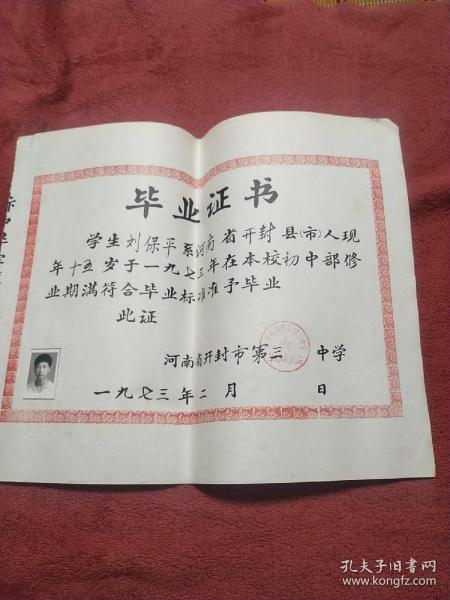 毕业证书
学生刘保平系河南省开封县(市)人现
年十五岁于一九七三年在本校初中部修
业期满符合毕业标准准予毕业
此证
河南省开封市第三中学
一九七三年二月 日
孔夫子旧书网
www.kongfz.com